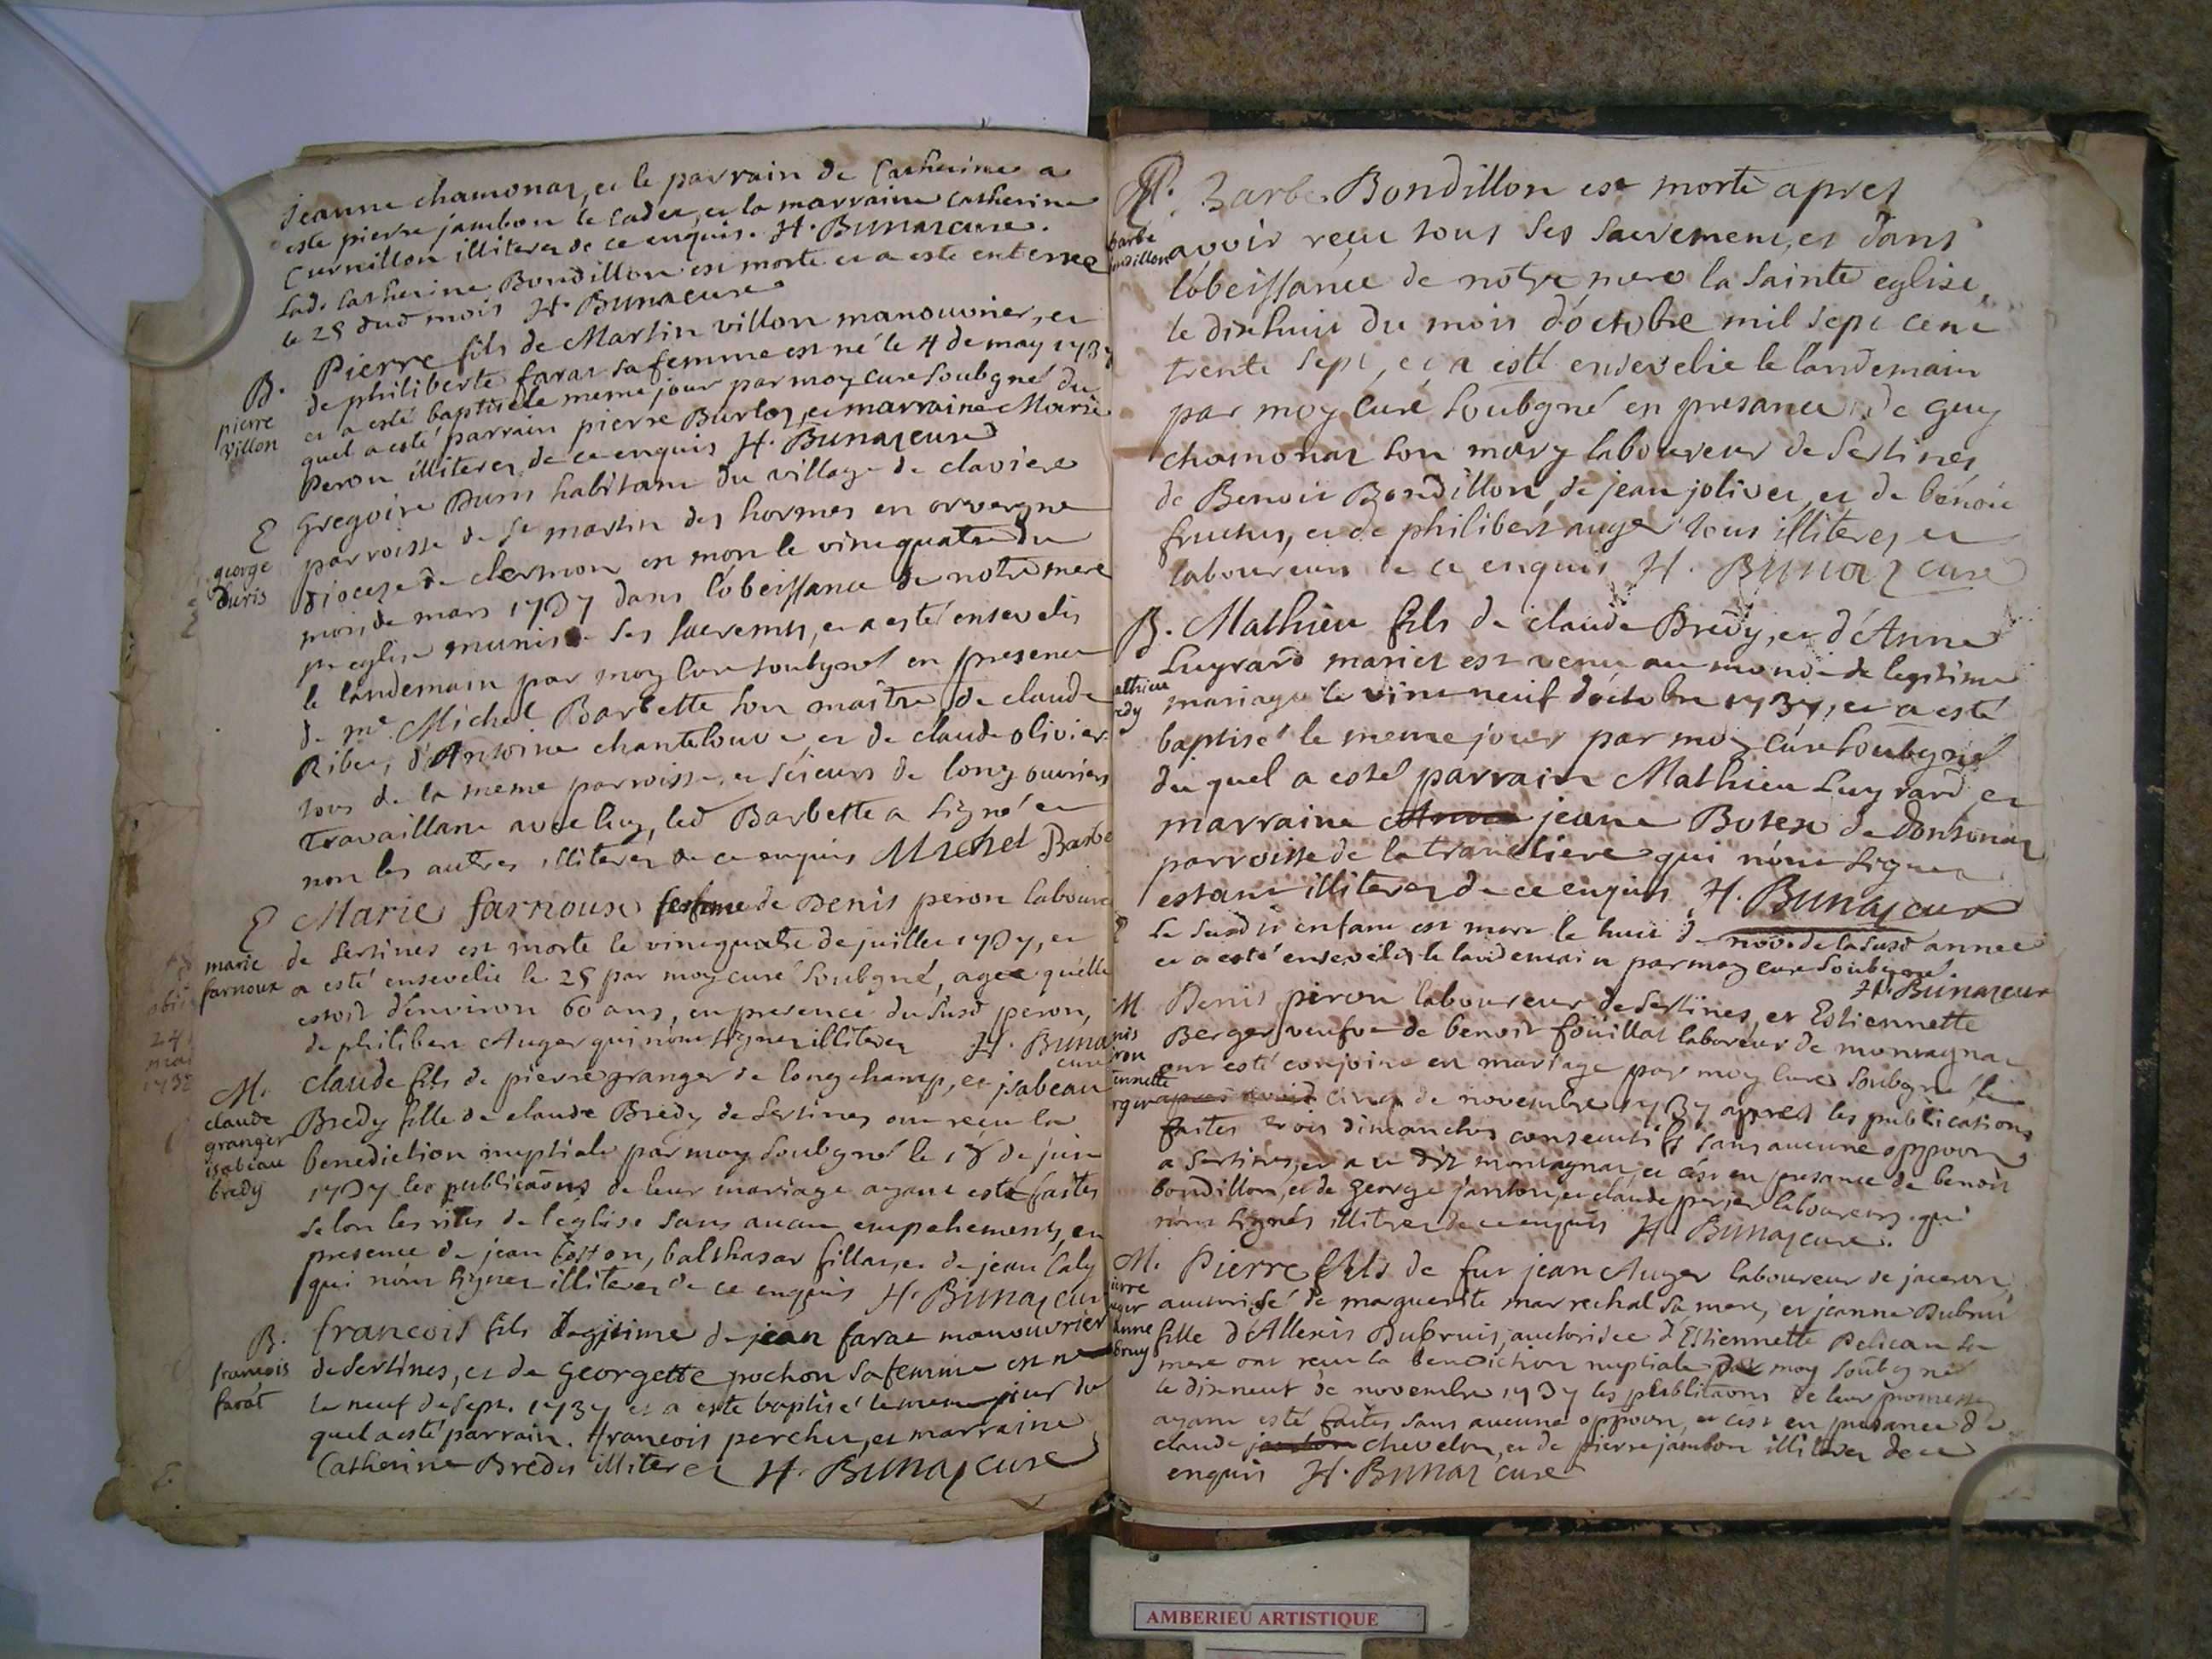 jeanne chamonaz, et le parrain de Catherine a
esté pierre jambon le cadet, et la marraine catherine
Curnillon illiterez de ce enquis. H. Bunaz curé.
Lad. Catherine Bondillon est morte et a esté enterrée
le 25 dud mois H. Bunaz curé
B. Pierre fils de Martin villon manouvrier, et
de philiberte faraz sa femme est né le 4 de may 1737
pierre et a esté baptisé le meme jour par moy curé soubgné du
villon quel a esté parrain pierre Burloz, et marraine Marie
peron illiterez de ce enquis H. Bunaz curé
E Gregoire Duris habitant du village de claviere
parroisse de St martin des hormes en orvergne
george diocese de clermon est mort le vint quatre du
duris mois de mars 1737 dans l'obeissance de notre mere
ste eglise munis de ses sacremts, et a esté ensevelis
le landemain par moy curé soubgné en presence
de me Michel Barbette son maitre, de claude
Ribe, d'Antoine chantelouve, et de claude olivier
tous de la meme parroisse, et scieurs de long ouvriers
travaillant avec luy, led Barbette a signé et
non les autres illiterez de ce enquis Michel Barbe
E Marie farnoux femme de Denis peron laboure
marie de Sertines est morte le vint quatre de juillet 1737, et
farnoux a esté ensevelie le 25 par moy curé soubgné, agée qu'elle
estoit d'environ 60 ans, en presence du susd peron,
de philibert Auger qui n'ont signer illiterez H. Buna
curé
24
mai
1732
M. claude fils de pierre granger de longchamp, et jsabeau
claude Bredy fille de claude Bredy de Sertines ont reçu la
granger
isabeau benediction nuptiale par moy soubgné le 18 de juin
bredy 1737 les publicaons de leur mariage ayant esté faites
selon les rites de l'eglise sans aucun empehements, en
presence de jean Cotton, balthasar fillar, et de jean Caly
qui n'ont signer illiterez de ce enquis H. Bunaz curé
B. francois fils legitime de jean farat manouvrier
francois de Sertines, et de georgette pochon sa femme est né
farat le neuf de sept. 1737 et a esté baptisé le meme jour du
quel a esté parrain. francois perchet, et marraine
Catherine Bredy illiterez H. Bunaz curé
Barbe Bondillon est morte apres
barbe avoir reçu tous ses sacremens, et dans
l'obeissance de notre mere la sainte eglise,
le dixhuit du mois d'octobre mil sept cent
trente sept, et a esté ensevelie le landemain
par moy curé soubgné en presance de guy
chamonaz son mary laboureur de Sertines
de Benoit Bondillon, de jean jolivet, et de benoit
fructus, et de philibert auger tous illiterez et
laboureurs de ce enquis H. Bunaz curé
B. Mathieu fils de claude Bredy, et d'Anne
Luyrard mariez est venu au monde de legitime
athieu mariage le vint neuf d'octobre 1737, et a esté
edy baptisé le meme jour par moy curé soubgné
du quel a esté parrain Mathieu Luyrard et
marraine Anne jeane Botex de Donsonaz
parroisse de la trancliere qui n'ont signer
estant illiterez de ce enquis, H. Bunaz curé
E Le susdit enfant est mort le huit de nov. de la susd année
et a esté ensevelis le landemain par moy curé soubgné.
H. Bunaz curé
M Denis peron laboureur de Sertines, et Estiennette
nis Berger veufve de benoit foüillat laboureur de montagnat
ron ont esté conjoint en mariage par moy curé soubgné le
iennette
rger apres avoir cinq de novembre 1737 apres les publications
faites trois dimanches consecutifs sans aucune oppoon
a Sertines, et a u dit montagnat, et cest en presance de benoit
bondillon, et de george jambon, et claude perier laboureurs qui
n'ont signés illiterez de ce enquis H. Bunaz curé.
M. Pierre fils de fut jean Auger laboureur de jaceron
ierre
uger auctorisé de marguerite marrechal sa mere, et jeanne Dubrui
anne fille d'Allexis Dubruis, auctorisée d'Estiennette Pelican sa
bruy mere ont reçu la benediction nuptiale par moy soubgné
le dixneuf de novembre 1737 les publicaons de leur promesse
ayant esté faites sans aucune oppoon, et cest en presance de
claude jambon chevelon, et de pierre jambon illiterez de ce
enquis H. Bunaz curé
AMBERIEU ARTISTIQUE